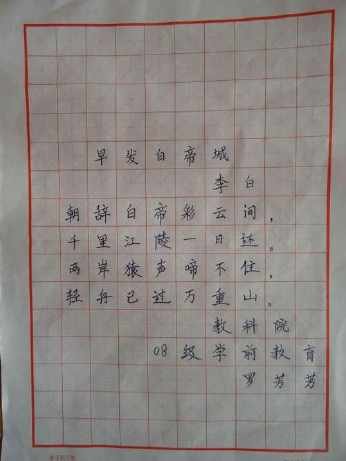 早发白帝城
李白
朝辞白帝彩云间，
千里江陵一日还。
两岸猿声啼不住，
轻舟已过万重山。
教科院
08级学前教育
罗芳芳